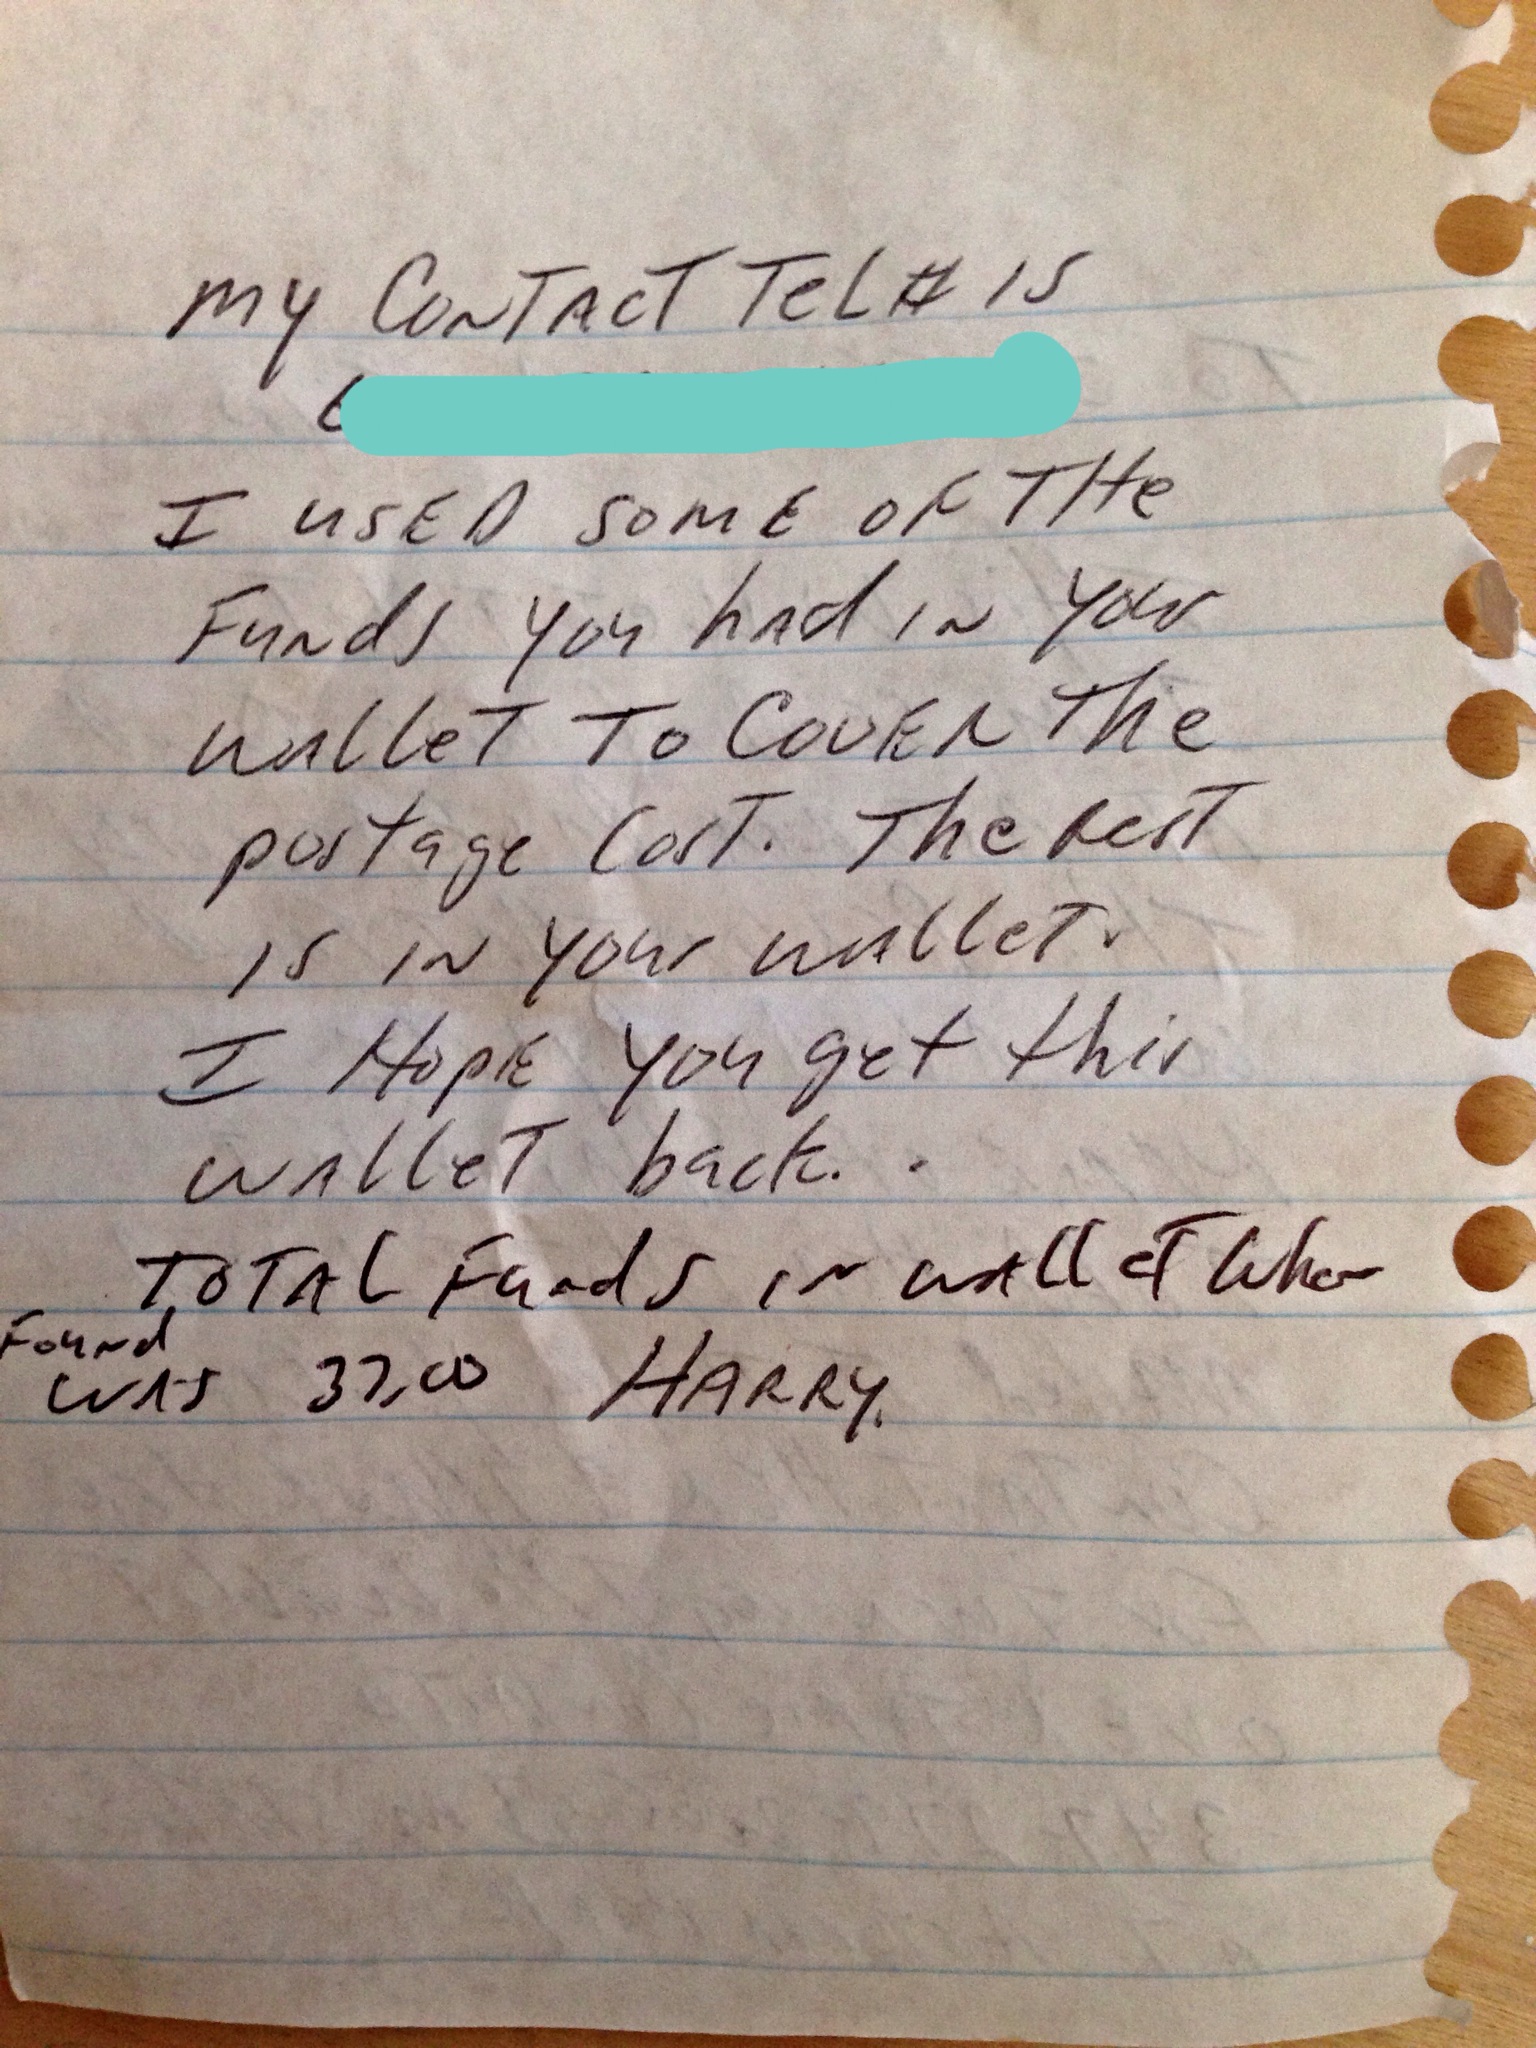 MY CONTACT TEL# IS
I USED SOME OF THe
Funds you had in your
wallet To COVER The
postage Cost. The Rest
is in your wallet.
I HOPE you get this
wallet back. .
TOTAL Funds in wallet when
Found
WAS 37.00 HARRY.